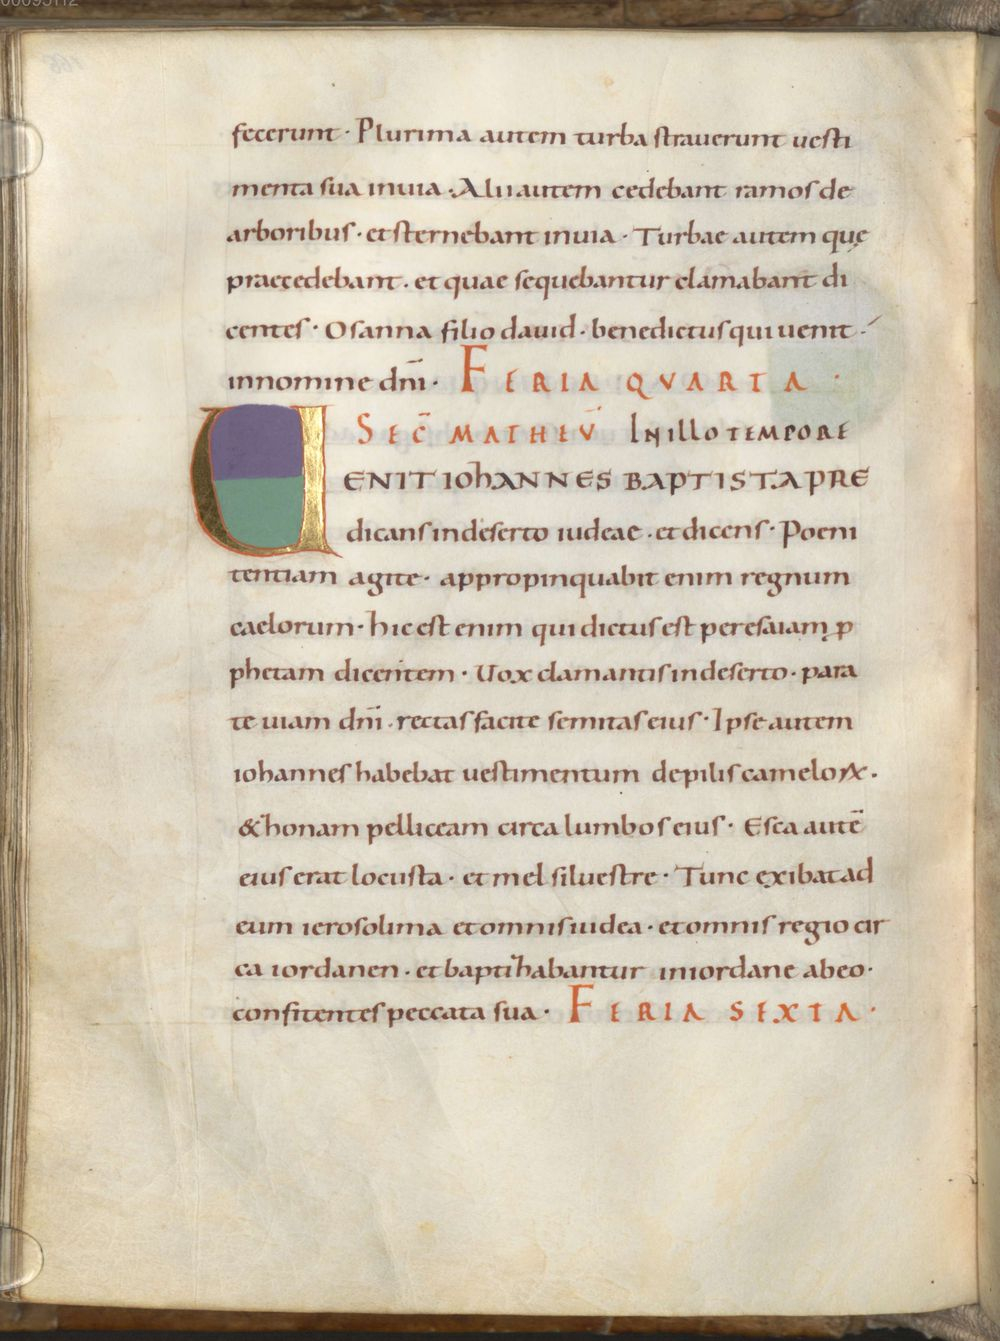 fecerunt · Plurima autem turba strauerunt uesti
menta sua inuia · Alii autem cedebant ramos de
arboribus · et sternebant inuia · Turbae autem quę
praecedebant · et quae sequebantur clamabant di
centes · Osanna filio dauid · benedictus qui uenit ·
innomine dn̄i · FERIA QVARTA ·
SEC̄ MATHEV̄ IN illo TEMPORE
UENIT IOhANNES BAPTISTA PRE
dicans in deserto iudeae · et dicens · Poeni
tentiam agite · appropinquabit enim regnum
caelorum · hic est enim qui dictus est per esaiam p
phetam dicentem · Uox clamantis in deserto · para
te uiam dn̄i · rectas facite semitas eius · Ipse autem
iohannes habebat uestimentum de pilis cameloꝝ ·
& honam pelliceam circa lumbos eius · Esca autē
eius erat locusta · et mel siluestre · Tunc exibat ad
eum ierosolima et omnis iudea · et omnis regio cir
ca iordanen · et baptihabantur in iordane ab eo ·
confitentes peccata sua · FERIA SEXTA ·